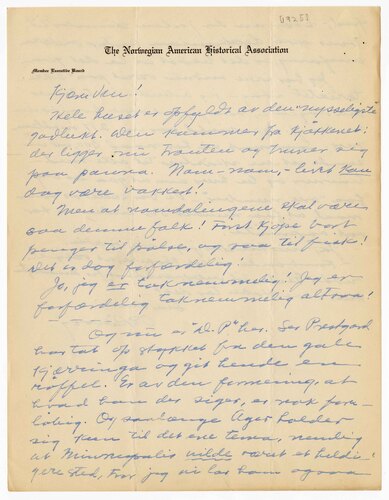 [1925]
The Norwegian American Historical Association
Member Executive Board
Kjære Ven!
Hele huset er opfyldt av den nysseligste
godlukt. Den kommer fra kjøkkenet;
der ligger nu Trouten og vrider sig
paa panna. Nam-nam, - livet kan
dog være vakkert!
Men at namdalingene skal være
saa demme folk! Først kjøpe bort
penger til pølse, og saa til fisk!
Det er dog forfærdelig!
Ja, jeg er taknemmelig! Jeg er
forfærdelig taknemmelig altsaa!
Og nu er "D. P" her. Ser Prestgard
har tat op stykket fra den gale
Kjærringa og git hende en
røffel. Er av den formening, at
hvad han der siger, er nok for-
løbig. Og saalænge Ager holder
sig kun til det ene tema, nemlig
at Minneapolis vilde været et heldi-
gere sted, tror jeg vi lar ham ogsaa